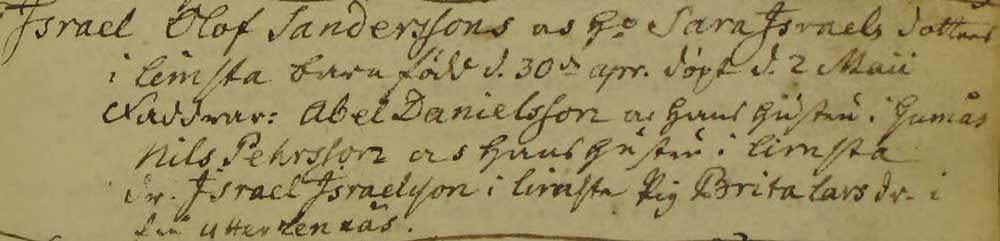 Israel Olof Sanderssons och H:o Sara Israels dotters
i limsta barn född d. 30de apr. döpt d. 2 Maii
Faddrar: Abel Danielsson och hans hustru i
Nils Pehrsson och hans hustru i limsta
dr. Israel Israelsson i limsta Pig Brita Lars dr. i